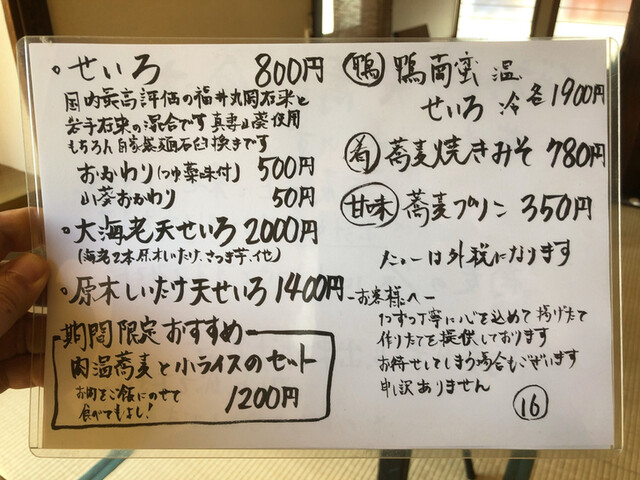 ・せいろ 800円
国内最高評価の福井丸岡在来と
岩手在来の混合です 真妻山葵使用
もちろん自家製麺石臼挽きです
おかわり(つゆ薬味付) 500円
山葵おかわり 50円
・大海老天せいろ 2000円
(海老2本.原木しいたけ.さつま芋.他)
・原木しいたけ天せいろ 1400円
期間限定おすすめ
肉温蕎麦と小ライスのセット
お肉をご飯にのせて
食べてもよし! 1200円
鴨 鴨南蛮 温
せいろ 冷 各1900円
肴 蕎麦焼きみそ 780円
甘味 蕎麦プリン 350円
メニューは外税になります
-お客様へ-
1つずつ丁寧に心を込めて揚げたて
作りたてを提供しております
お待せしてしまう場合もございます
申し訳ありません
16